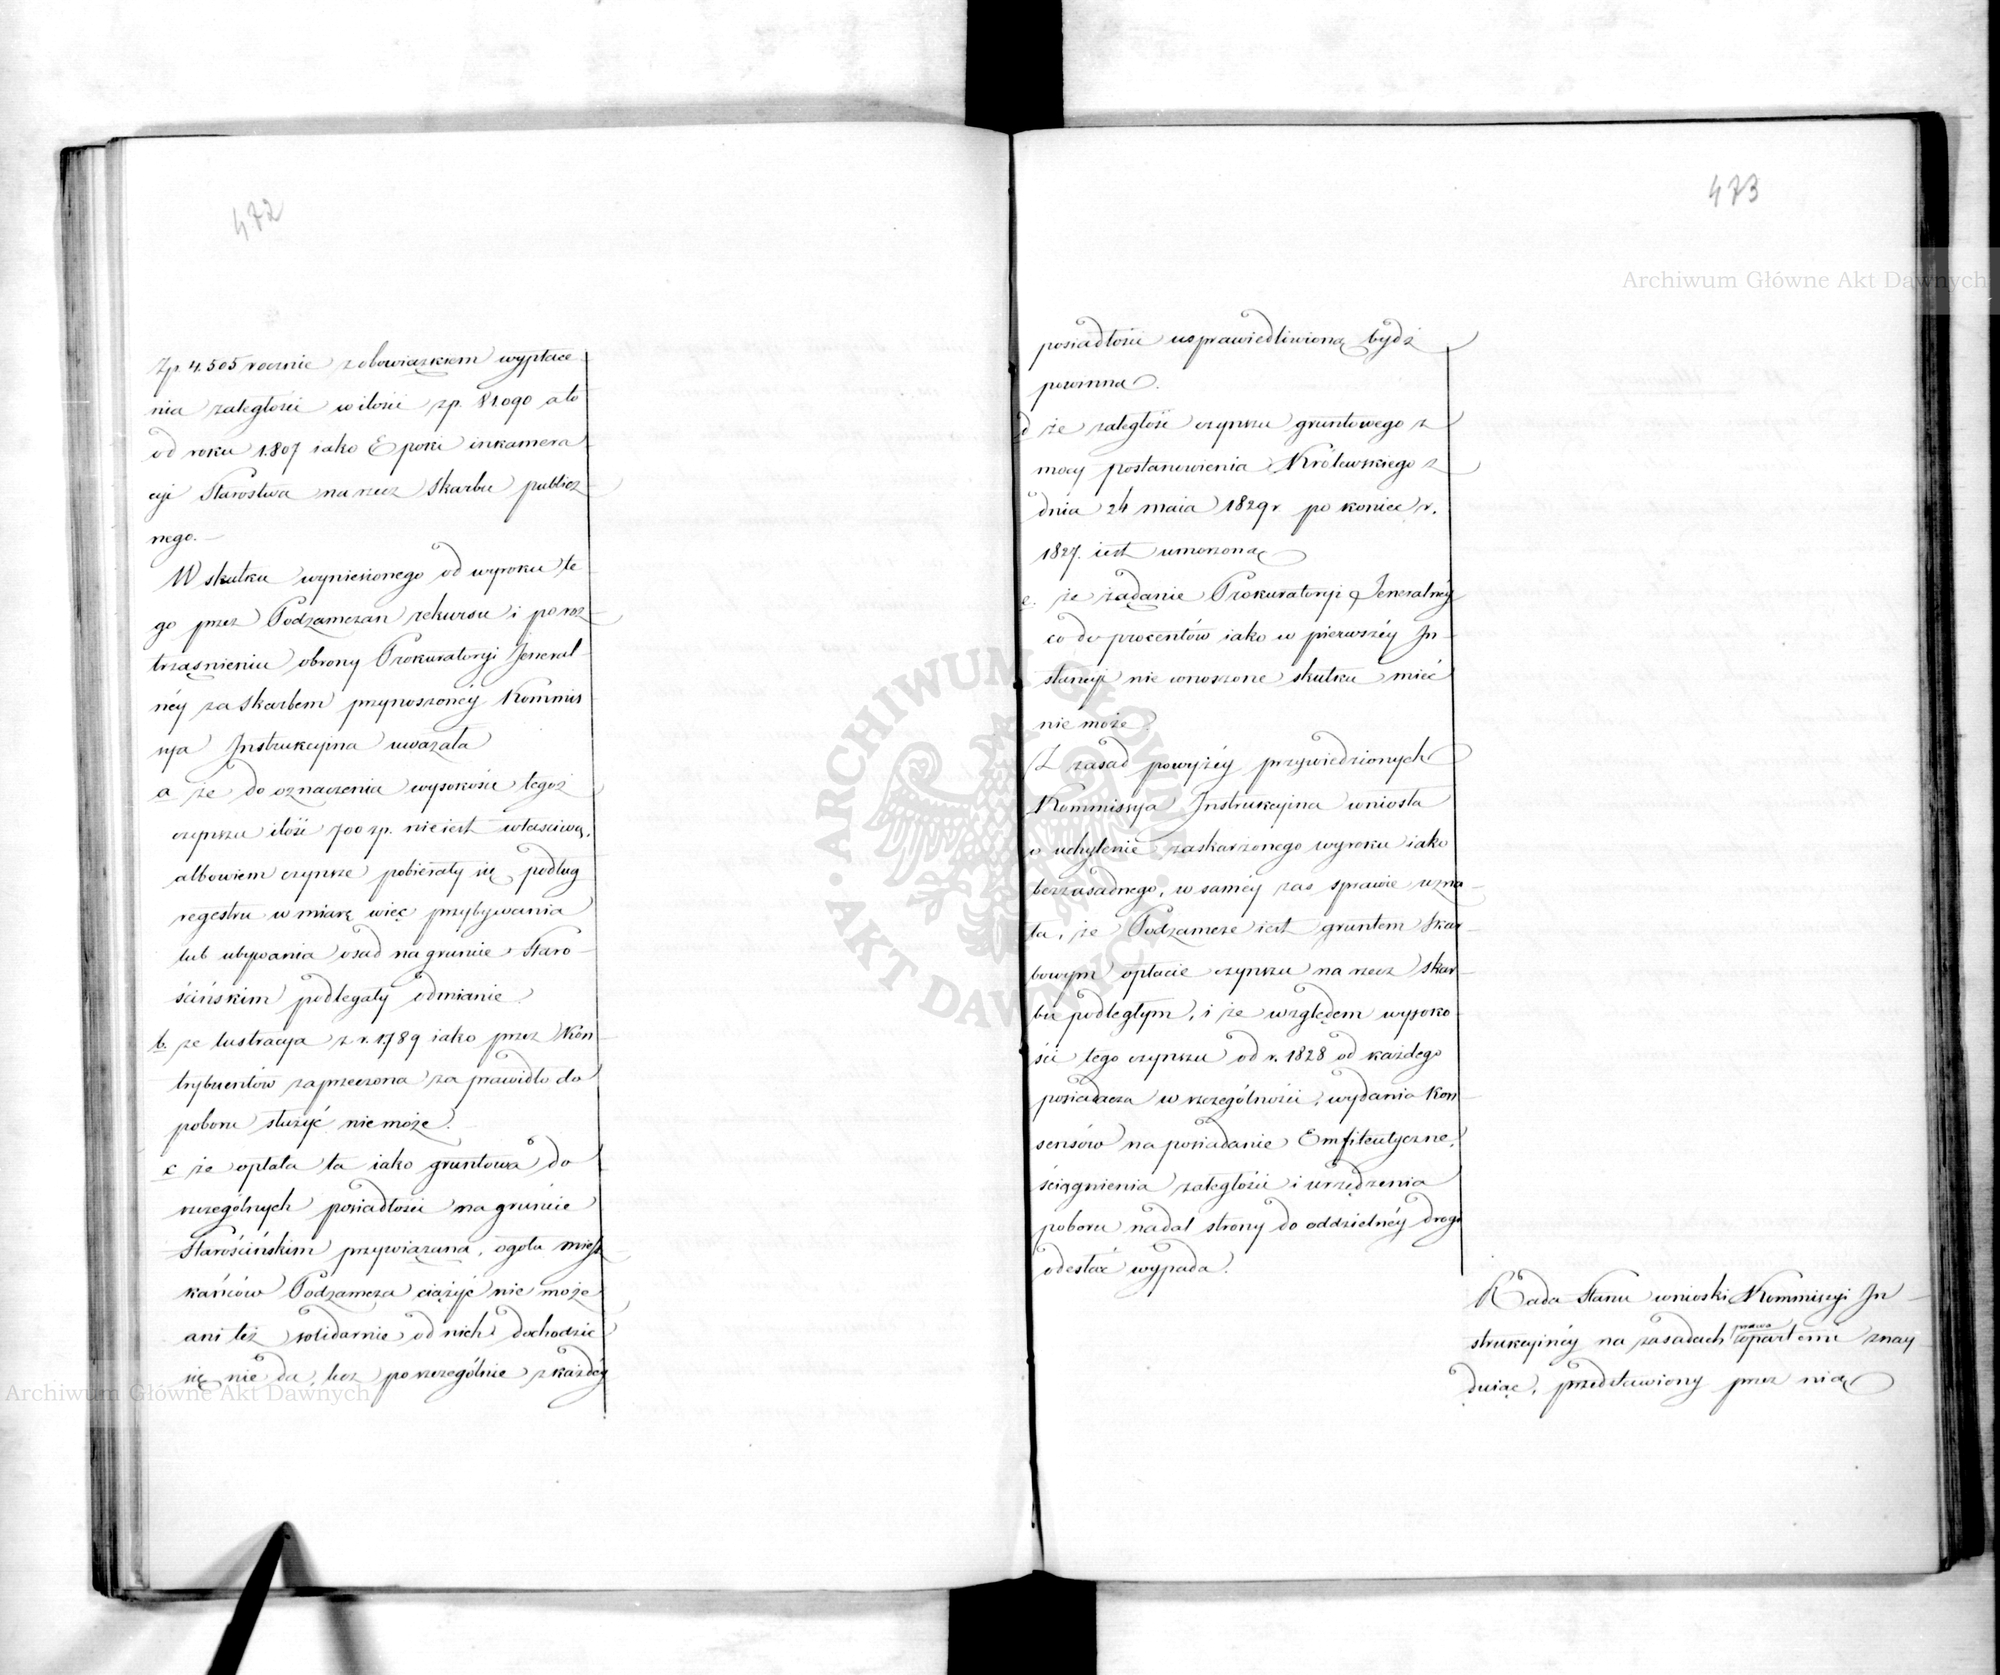 472
zp. 4.505 rocznie z obowiązkiem wypłace
nia zaległości w ilości zp. 81.090 a to
od roku 1807 iako Epoki inkamera
cyi Starostwa na rzecz Skarbu publicz
nego. —
W skutku wyniesionego od wyroku te
go przez Podzamczan rekursu i po roz
trząśnieniu obrony Prokuratoryi Jeneral
néy za Skarbem przynoszonéy Kommis
sya Instrukcyina uważała
a że do oznaczenia wysokości tegoż
czynszu ilość 700 zp. nie iest właściwą,
albowiem czynsze pobierały się podług
regestru w miarę więc przybywania
lub ubywania osad na gruncie Staro-
ścińskim podlegały odmianie
b. że lustracya z r. 1789 iako przez Kon-
trybuentów zaprzeczona za prawidło do
poboru służyć nie może.
c że opłata ta iako gruntowa do
szczególnych posiadłości na gruncie
Starościńskim przywiązana, ogółu miesz
kańców Podzamcza ciążyć nie może
ani też solidarnie od nich dochodzić
się nie da, lecz poszczególnie z każdéy
473
posiadłości usprawiedliwioną bydź
powinna.
d że zaległość czynszu gruntowego z
mocy postanowienia Królewskiego z
dnia 24 maia 1829 r po koniec r.
1827. iest umorzoną
e. że żądanie Prokuratoryi Jeneralnéy
co do procentów iako w pierwszéy In-
stancyi nie wnoszone skutku mieć
nie może.
Z zasad powyżéy przywiedzionych
Kommissya Instrukcyina wniosła
o uchylenie zaskarżonego wyroku iako
bezzasadnego, w saméy zas sprawie uzna-
ła, że Podzamcze iest gruntem Skar-
bowym opłacie czynszu na rzecz skar-
bu podległym, i że względem wysoko-
ści tego czynszu od r. 1828 od każdego
posiadacza w szczególności, wydania Kon
sensów na posiadanie Emfiteutyczne,
ściągnienia zaległości i urządzenia
poboru nadal strony do oddzielnéy drogi
odesłać wypada.
Rada Stanu wnioski Kommissyi In-
strukcyinéy na zasadach prawa opartemi znay
duiąc, przedstawiony przez nią
Archiwum Główne Akt Dawnych
Archiwum Główne Akt Dawnych
ARCHIWUM GŁÓWNE AKT DAWNYCH